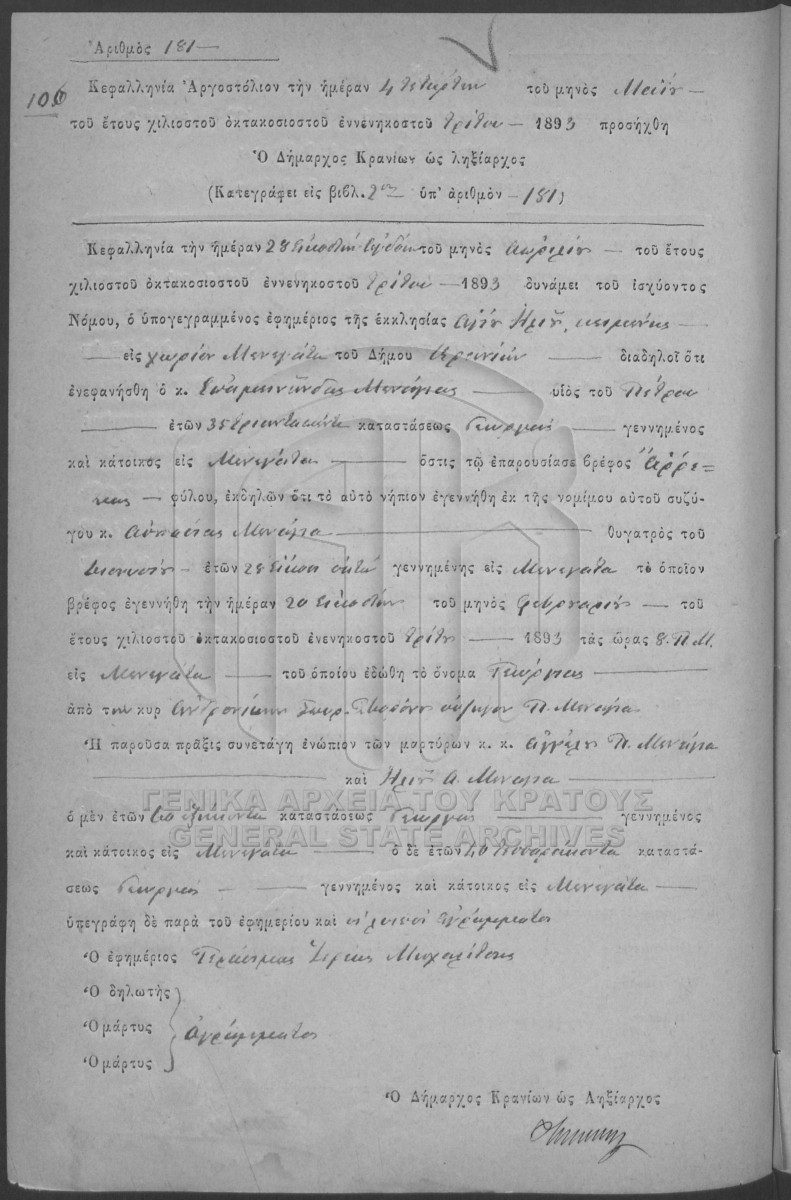 Ἀριθμὸς 181 —
106
Κεφαλληνία Ἀργοστόλιον τὴν ἡμέραν 4 Τετάρτην τοῦ μηνὸς Μαΐου —
τοῦ ἔτους χιλιοστοῦ ὀκτακοσιοστοῦ ἐννενηκοστοῦ τρίτου — 1893 προσήχθη
Ὁ Δήμαρχος Κρανίων ὡς ληξίαρχος
(Κατεγράφει εἰς βιβλ. 2ον ὑπ' ἀριθμὸν — 181)
Κεφαλληνία τὴν ἡμέραν 28 τοῦ μηνὸς Ἀπριλίου — τοῦ ἔτους
χιλιοστοῦ ὀκτακοσιοστοῦ ἐννενηκοστοῦ τρίτου — 1893 δυνάμει τοῦ ἰσχύοντος
Νόμου, ὁ ὑπογεγραμμένος ἐφημέριος τῆς ἐκκλησίας Ἁγίου Ἠλιοῦ, κειμένης —
— εἰς χωρίον Μενεγάτα τοῦ Δήμου Κρανιών — διαδηλοῖ ὅτι
ἐνεφανήσθη ὁ κ. Ἐπαμεινώνδας — υἱὸς τοῦ Πέτρου
— ἐτῶν 35 τριανταπέντε καταστάσεως Γεωργός — γεννημένος
καὶ κάτοικος εἰς Μενεγάτα — ὅστις τῷ ἐπαρουσίασε βρέφος Ἄρρε-
νος — φύλου, ἐκδηλῶν ὅτι τὸ αὐτὸ νήπιον ἐγεννήθη ἐκ τῆς νομίμου αὐτοῦ συζύ-
γου κ. Ἀσπασίας — θυγατρὸς τοῦ
Διονυσίου — ἐτῶν 28 εἴκοσι ὀκτώ γεννημένης εἰς Μενεγάτα τὸ ὁποῖον
βρέφος ἐγεννήθη τὴν ἡμέραν 20 εἰκοστήν τοῦ μηνὸς Φεβρουαρίου — τοῦ
ἔτους χιλιοστοῦ ὀκτακοσιοστοῦ ἐνενηκοστοῦ τρίτου — 1893 τὰς ὥρας 8. Π.Μ.
εἰς Μενεγάτα — τοῦ ὁποίου ἐδώθη τὸ ὄνομα Γεώργιος —
ἀπὸ τὴν κυρ σύζυγον Π.
Ἡ παροῦσα πρᾶξις συνετάγη ἐνώπιον τῶν μαρτύρων κ. κ. Ἀγγέλου Π.
— καὶ Ἠλιοῦ Α. —
ΓΕΝΙΚΑ ΑΡΧΕΙΑ ΤΟΥ ΚΡΑΤΟΥΣ
ὁ μὲν ἐτῶν 60 ἑξήκοντα καταστάσεως Γεωργός — γεννημένος
GENERAL STATE ARCHIVES
καὶ κάτοικος εἰς Μενεγάτα — ὁ δὲ ἐτῶν 40 τεσσαράκοντα καταστά-
σεως Γεωργός — γεννημένος καὶ κάτοικος εἰς Μενεγάτα —
ὑπεγράφη δὲ παρὰ τοῦ ἐφημερίου καὶ οἱ λοιποί ἀγράμματοι
Ὁ ἐφημέριος Γεράσιμος Ἱερεύς
Ὁ δηλωτὴς
Ὁ μάρτυς ἀγράμματοι
Ὁ μάρτυς
Ὁ Δήμαρχος Κρανίων ὡς Ληξίαρχος